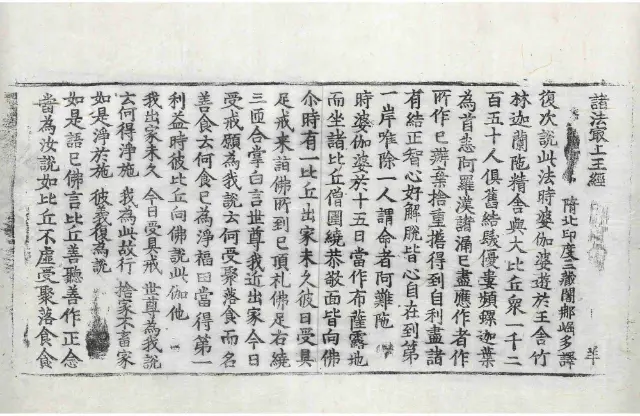 諸法最上王經
隋北印度三藏闍那崛多譯 羊
復次說此法時婆伽婆遊於王舍竹
林迦蘭陁精舍與大比丘衆一千二
百五十人俱舊結髮優婁頻螺迦葉
為首悉阿羅漢諸漏已盡應作者作
所作已辦棄捨重擔得到自利盡諸
有結正智心好解脫皆心自在到第
一岸唯除一人謂命者阿難陁
時婆伽婆於十五日當作布薩露地
而坐諸比丘僧圍繞恭敬面皆向佛
尒時有一比丘出家未久彼日受具
足戒来詣佛所到已頂礼佛足右繞
三匝合掌白言世尊我近出家今日
受戒願為我說云何受聚落食而名
善食云何食已為淨福田當得第一
利益時彼比丘向佛說此伽他
我出家未久 今日受具戒 世尊為我說
云何得淨施 我為此故行 捨家不畜家
如是淨於施 彼義復為說
如是語已佛言比丘善聽善作正念
當為汝說如比丘不虛受聚落食食